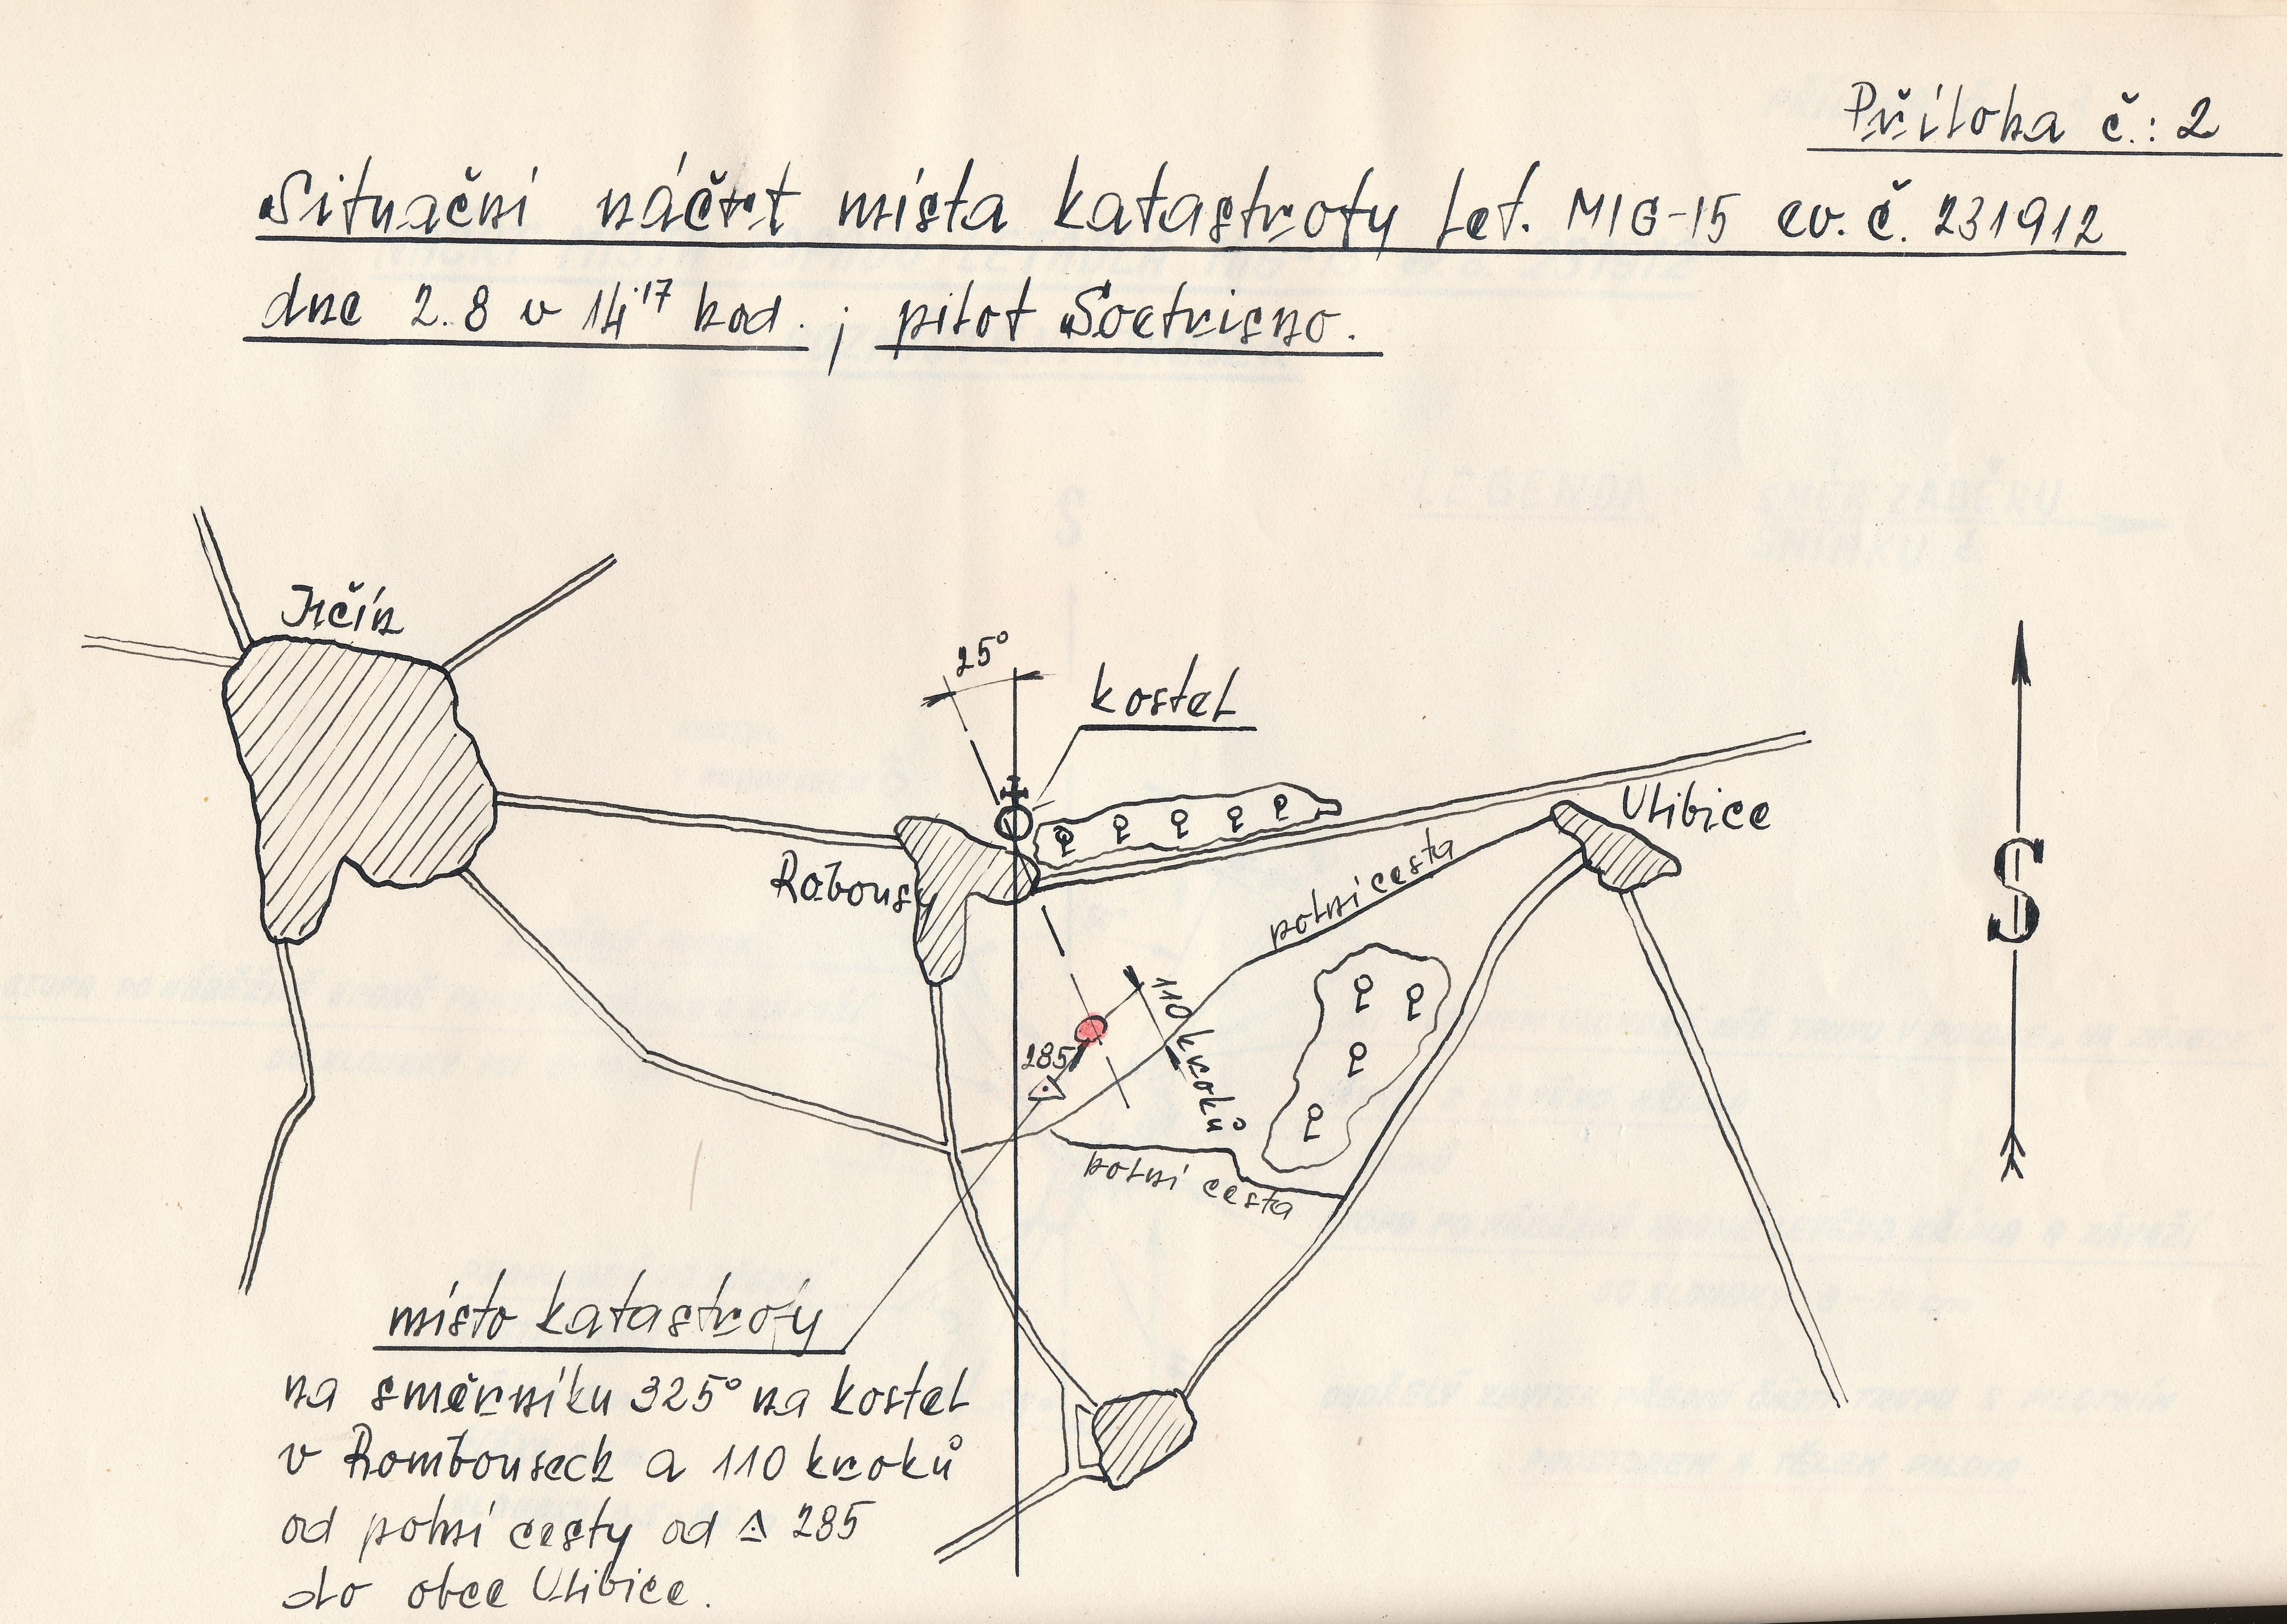 Příloha č.: 2
Situační náčrt místa katastrofy let. MIG-15 ev. č. 231912
dne 2.8 v 14¹⁷ hod. ; pilot Soetrisno.
Jičín
25°
kostel
Ulibice
Robousy
polní cesta
S
110 kroků
285
polní cesta
místo katastrofy
na směrníku 325° na kostel
v Rombousech a 110 kroků
od polní cesty od △ 285
do obce Ulibice.